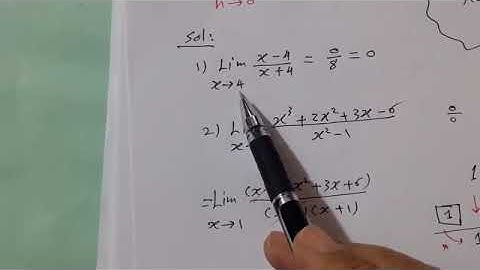 h→0
Sol:
1) Lim x→4 (x-4)/(x+4) = 0/8 = 0
2) Li x→ (x³+2x²+3x-6)/(x²-1) 0/0
=Lim x→1 (x x²+3x+6)/( (x+1)
1
1
1